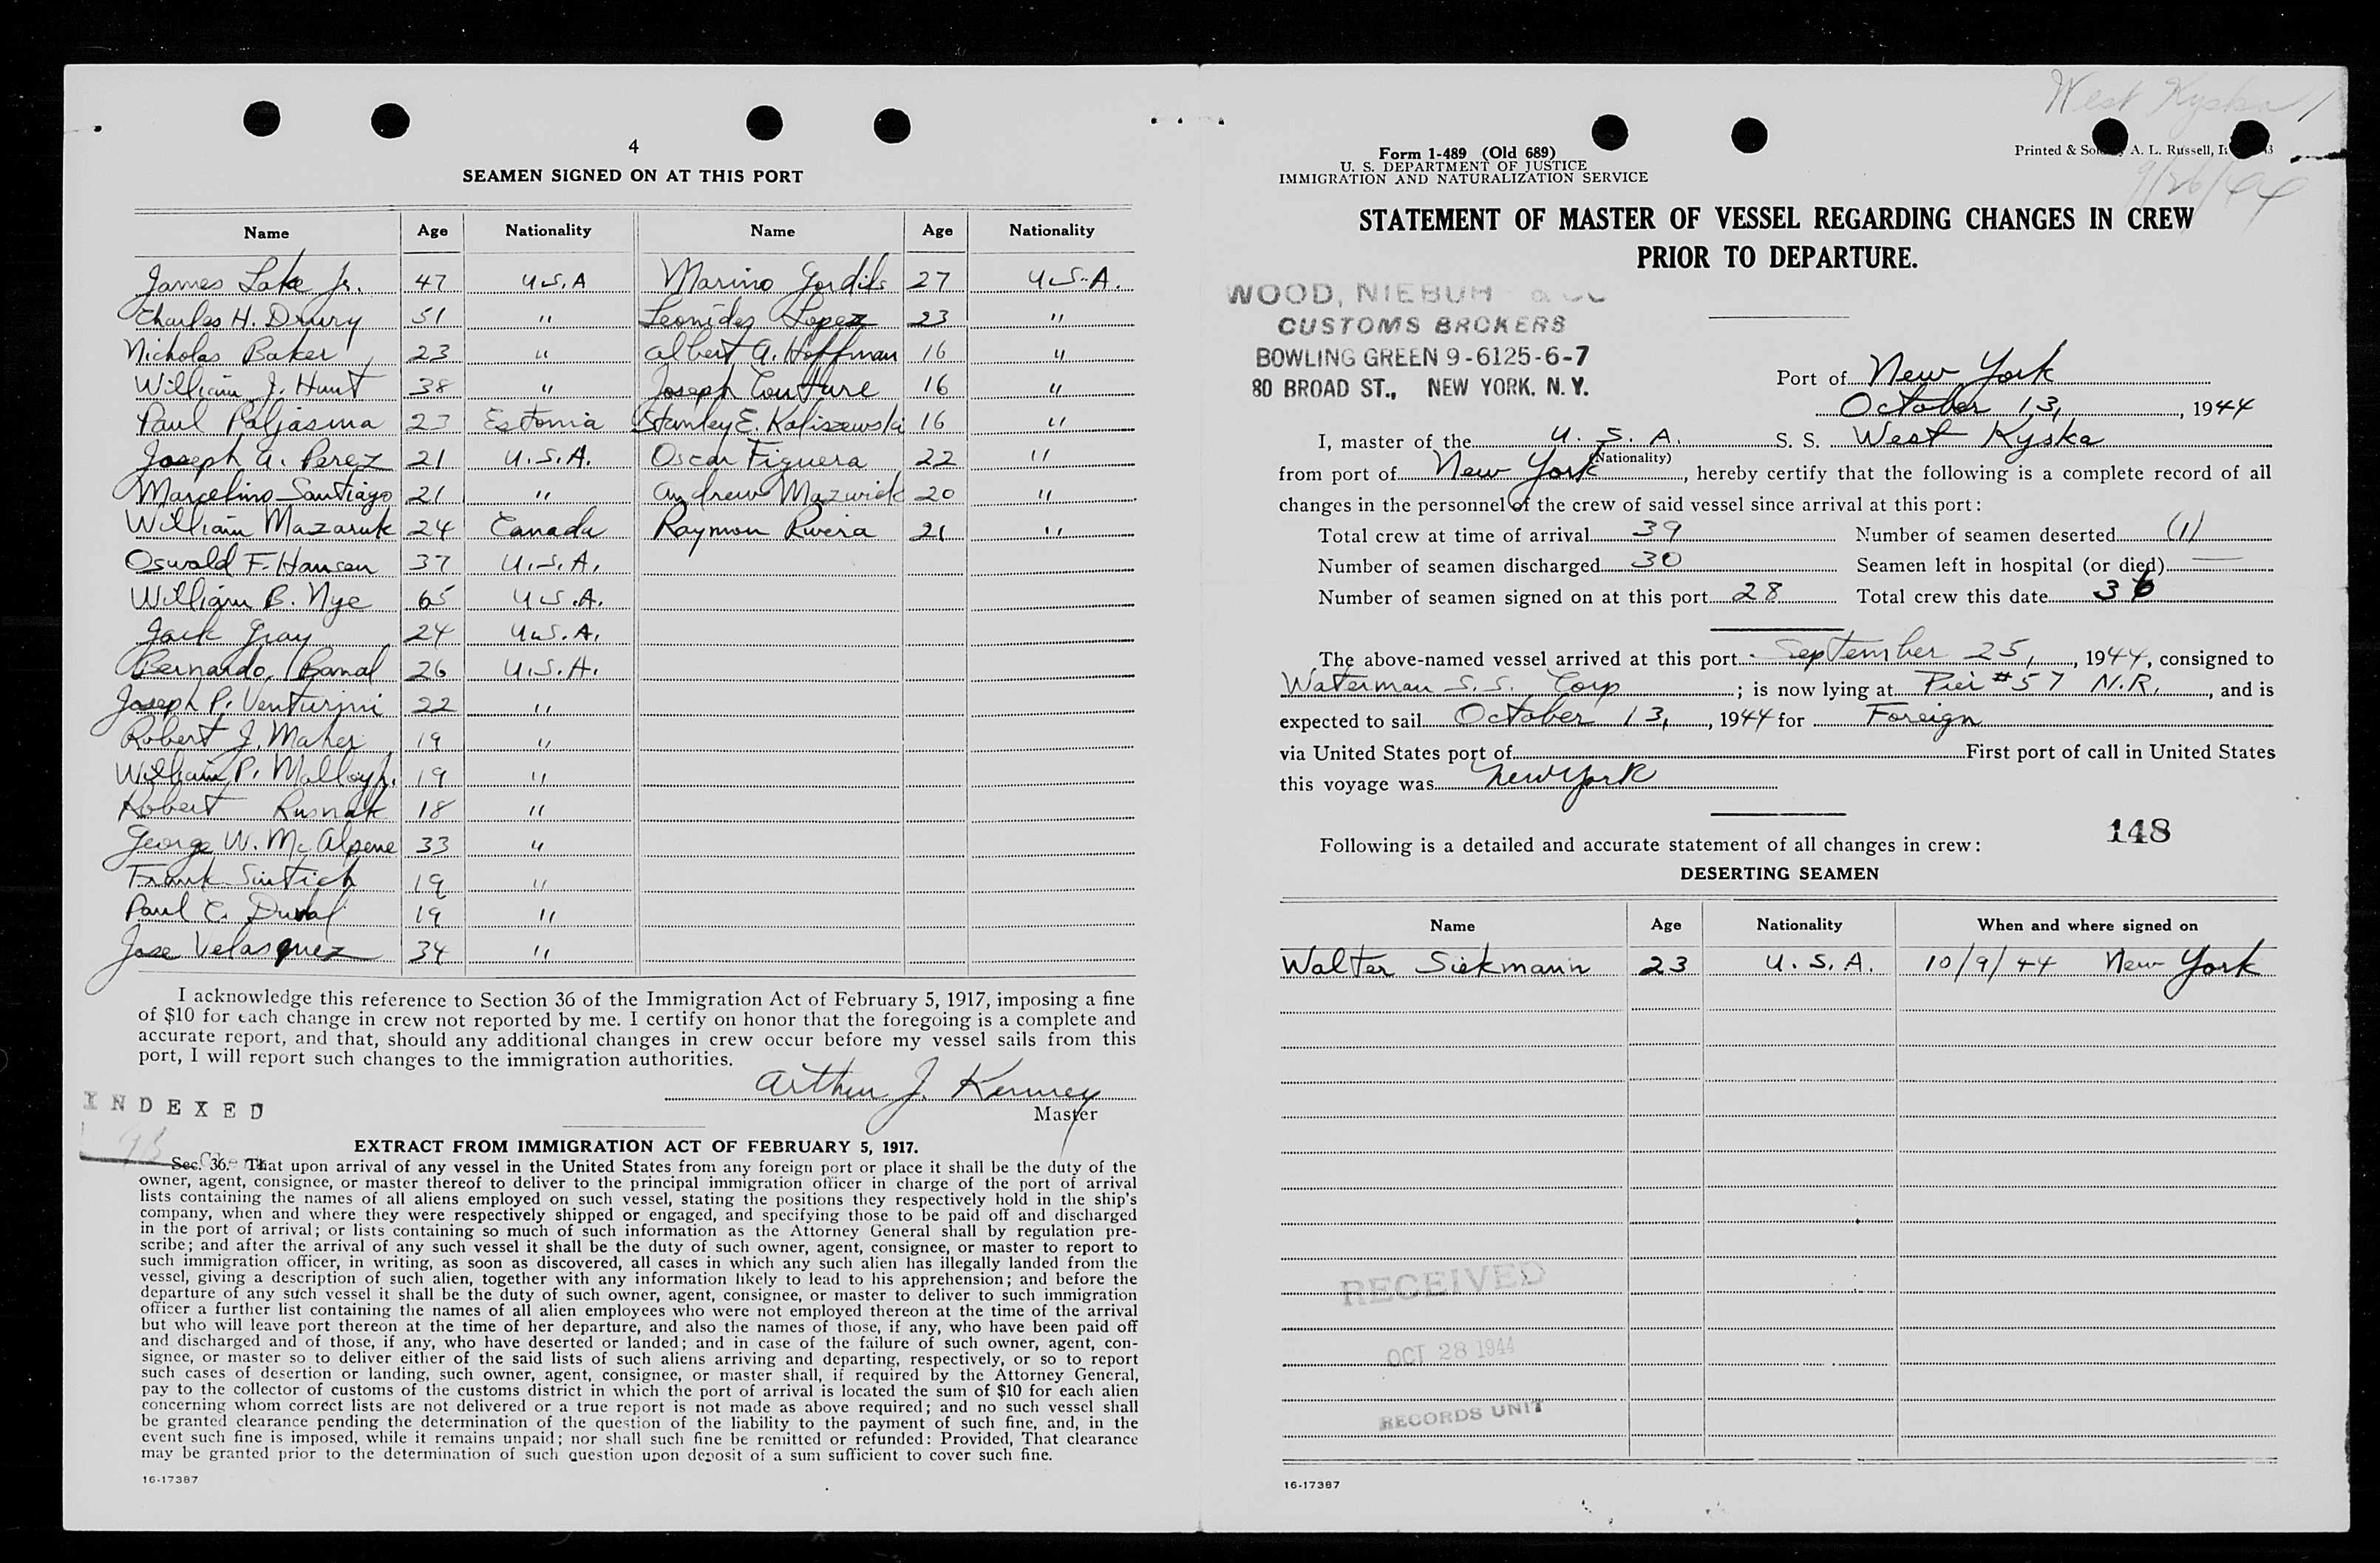 4
SEAMEN SIGNED ON AT THIS PORT
Name Age Nationality Name Age Nationality
James Lake Jr. 47 U.S.A Marino Gordils 27 U.S.A.
Charles H. Drury 51 " Leonides Lopez 23 "
Nicholas Baker 23 " Albert A. Hoffman 16 "
William J. Hunt 38 " Joseph Couture 16 "
Paul Paljasma 23 Estonia Stanley E. Kaliszewski 16 "
Joseph A. Perez 21 U.S.A. Oscar Figuera 22 "
Marcelino Santiago 21 " Andrew Mazurick 20 "
William Mazaruk 24 Canada Raymon Rivera 21 "
Oswald F. Hansen 37 U.S.A.
William B. Nye 65 U.S.A.
Jack Gray 24 U.S.A.
Bernardo Bamal 26 U.S.A.
Joseph P. Venturini 22 "
Robert J. Maher 19 "
William P. Malloy Jr. 19 "
Robert Rusnak 18 "
George W. McAlpene 33 "
Frank Sintich 19 "
Paul C. Duval 19 "
Jose Velasquez 34 "
I acknowledge this reference to Section 36 of the Immigration Act of February 5, 1917, imposing a fine
of $10 for each change in crew not reported by me. I certify on honor that the foregoing is a complete and
accurate report, and that, should any additional changes in crew occur before my vessel sails from this
port, I will report such changes to the immigration authorities.
Arthur J. Kenney
Master
INDEXED
EXTRACT FROM IMMIGRATION ACT OF FEBRUARY 5, 1917.
Sec. 36. That upon arrival of any vessel in the United States from any foreign port or place it shall be the duty of the
owner, agent, consignee, or master thereof to deliver to the principal immigration officer in charge of the port of arrival
lists containing the names of all aliens employed on such vessel, stating the positions they respectively hold in the ship's
company, when and where they were respectively shipped or engaged, and specifying those to be paid off and discharged
in the port of arrival; or lists containing so much of such information as the Attorney General shall by regulation pre-
scribe; and after the arrival of any such vessel it shall be the duty of such owner, agent, consignee, or master to report to
such immigration officer, in writing, as soon as discovered, all cases in which any such alien has illegally landed from the
vessel, giving a description of such alien, together with any information likely to lead to his apprehension; and before the
departure of any such vessel it shall be the duty of such owner, agent, consignee, or master to deliver to such immigration
officer a further list containing the names of all alien employees who were not employed thereon at the time of the arrival
but who will leave port thereon at the time of her departure, and also the names of those, if any, who have been paid off
and discharged and of those, if any, who have deserted or landed; and in case of the failure of such owner, agent, con-
signee, or master so to deliver either of the said lists of such aliens arriving and departing, respectively, or so to report
such cases of desertion or landing, such owner, agent, consignee, or master shall, if required by the Attorney General,
pay to the collector of customs of the customs district in which the port of arrival is located the sum of $10 for each alien
concerning whom correct lists are not delivered or a true report is not made as above required; and no such vessel shall
be granted clearance pending the determination of the question of the liability to the payment of such fine, and, in the
event such fine is imposed, while it remains unpaid; nor shall such fine be remitted or refunded: Provided, That clearance
may be granted prior to the determination of such question upon deposit of a sum sufficient to cover such fine.
16-17387
West Kyska 1
9/26/44
Form 1-489 (Old 689)
U. S. DEPARTMENT OF JUSTICE
IMMIGRATION AND NATURALIZATION SERVICE
Printed & A. L. Russell,
STATEMENT OF MASTER OF VESSEL REGARDING CHANGES IN CREW
PRIOR TO DEPARTURE.
WOOD, NIEBUH & CO
CUSTOMS BROKERS
BOWLING GREEN 9-6125-6-7
80 BROAD ST., NEW YORK, N. Y.
Port of New York
October 13, , 1944
I, master of the U. S. A. S. S. West Kyska
(Nationality)
from port of New York , hereby certify that the following is a complete record of all
changes in the personnel of the crew of said vessel since arrival at this port:
Total crew at time of arrival 39 Number of seamen deserted (1)
Number of seamen discharged 30 Seamen left in hospital (or died) —
Number of seamen signed on at this port 28 Total crew this date 36
The above-named vessel arrived at this port September 25, , 1944, consigned to
Waterman S.S. Corp ; is now lying at Pier #57 N.R. , and is
expected to sail October 13, , 1944 for Foreign
via United States port of First port of call in United States
this voyage was New York
148
Following is a detailed and accurate statement of all changes in crew:
DESERTING SEAMEN
Name Age Nationality When and where signed on
Walter Siekmann 23 U. S. A. 10/9/44 New York
RECEIVED
OCT 28 1944
RECORDS UNIT
16-17387